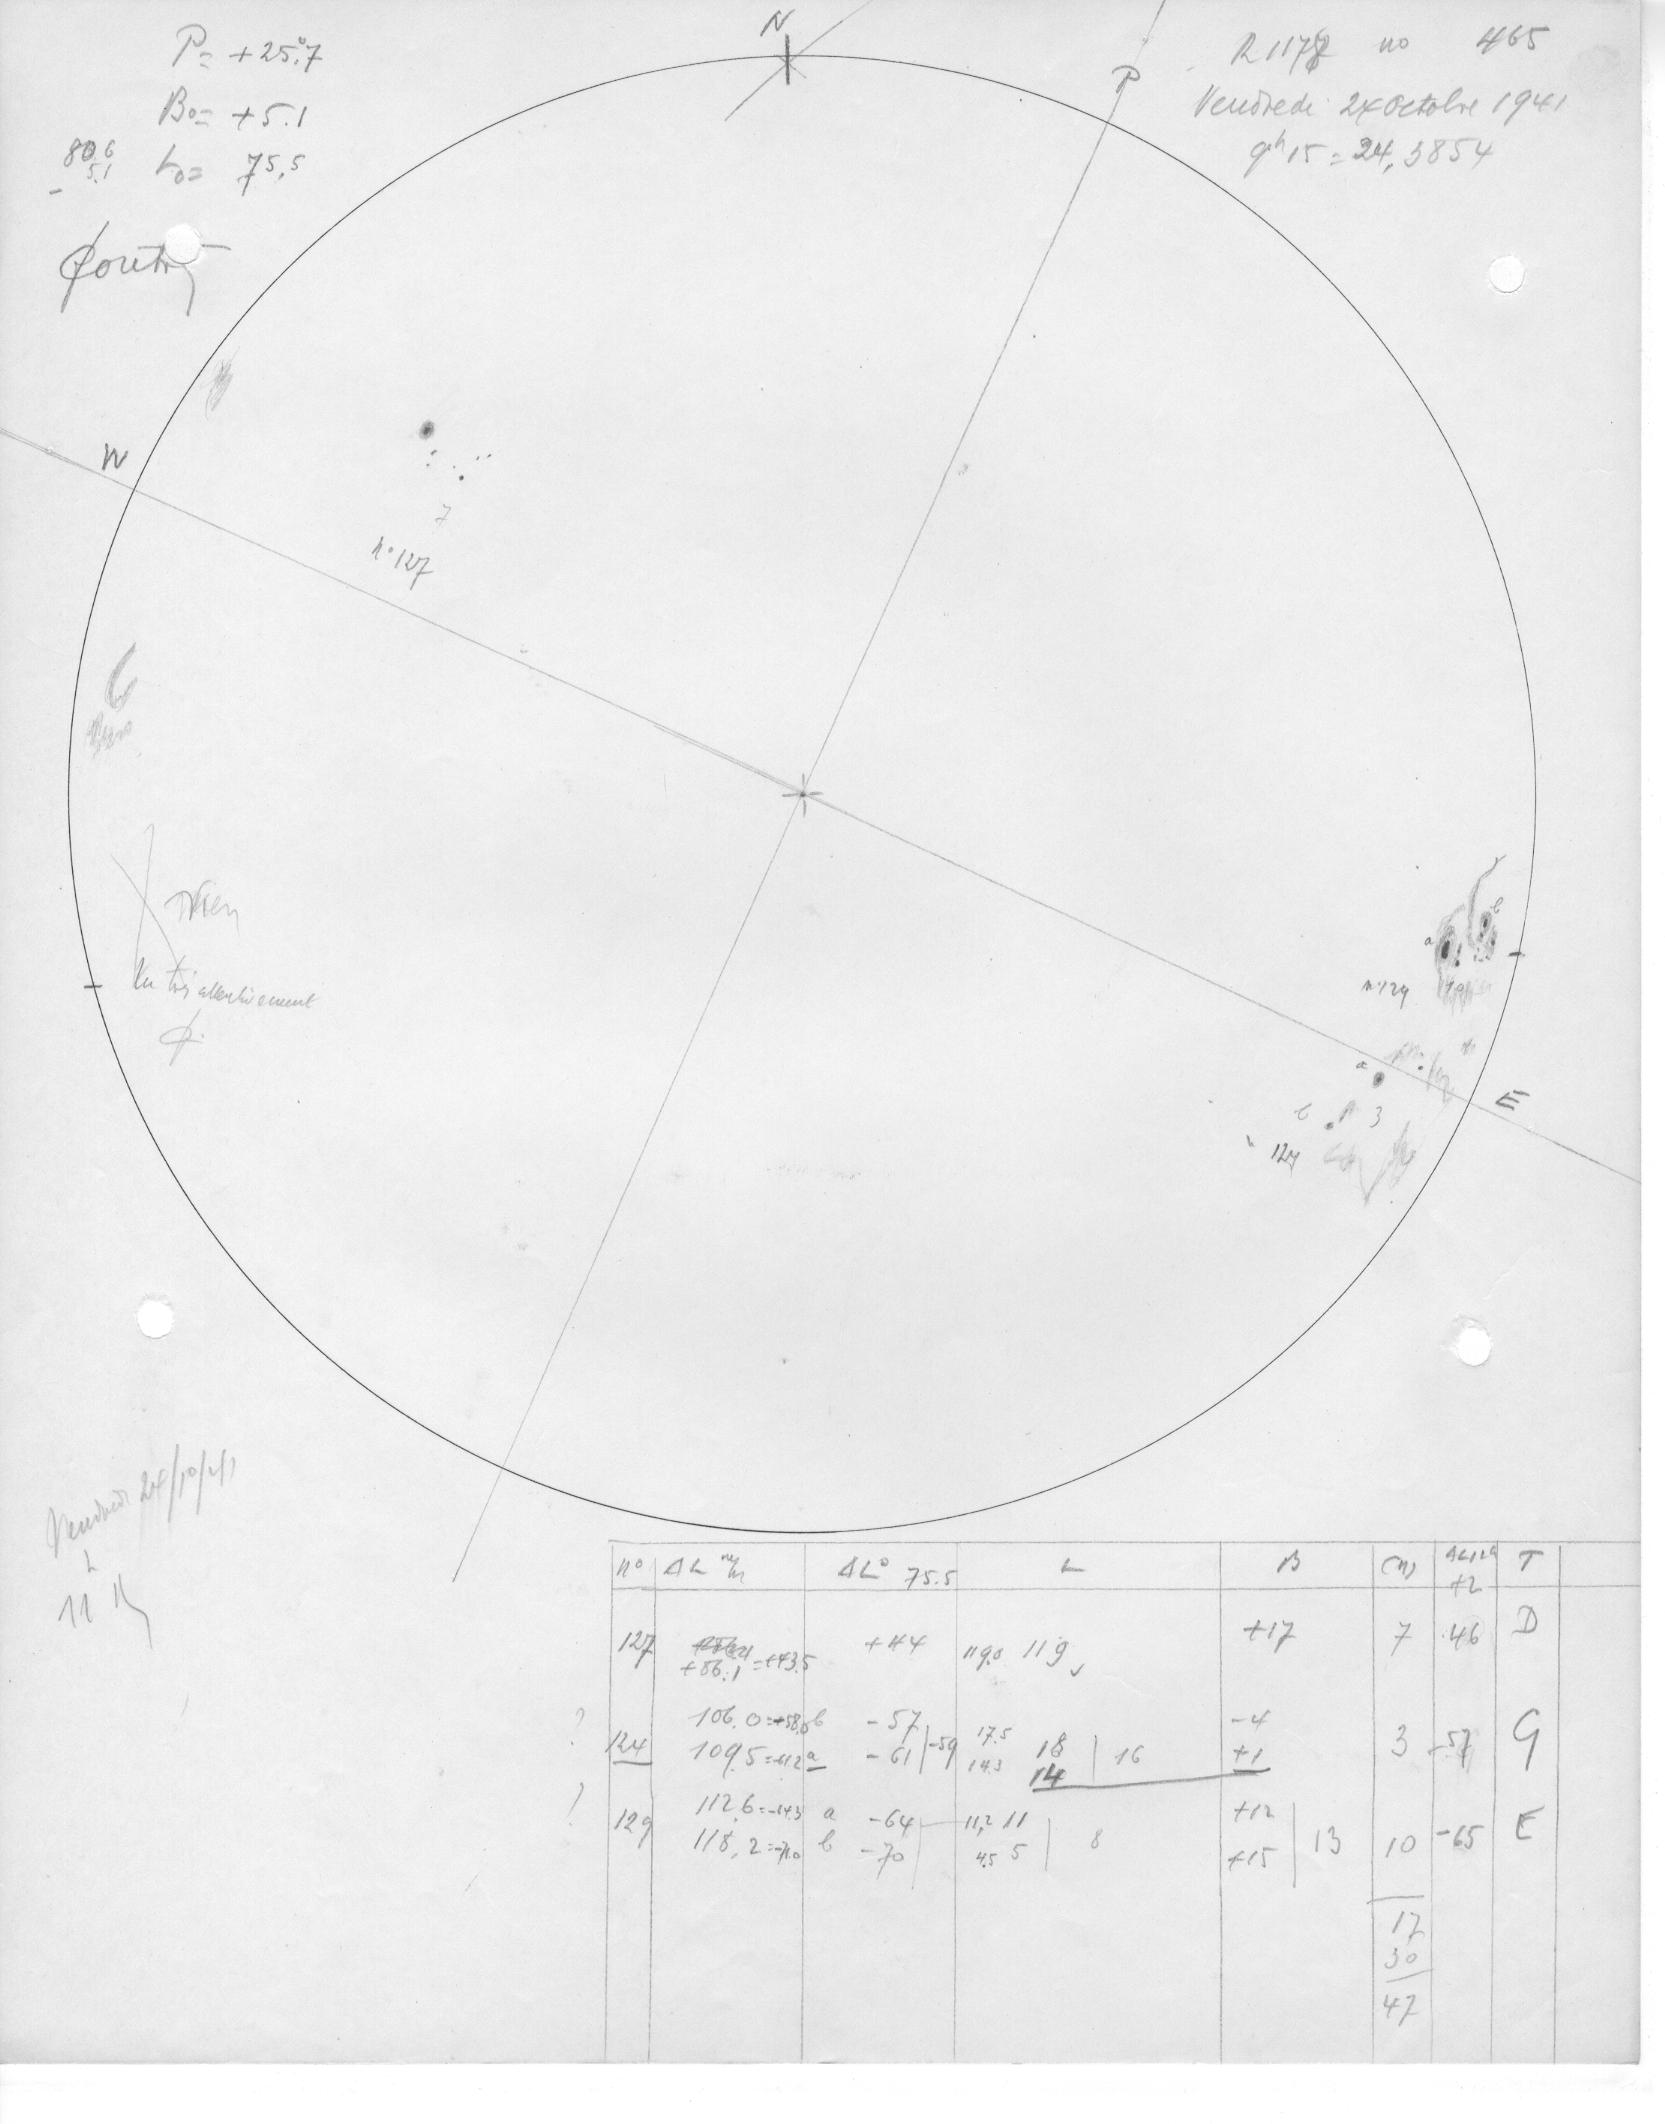 N
P= +25°.7
Bo= +5.1
80.6
- 5.1
Lo= 75.5
R 1177 no 465
Vendredi 24 octobre 1941
9h 15 = 24,3854
P
W
7
n°127
6
rien
Vu très attentivement
a
b
n 129
a
E
b
3
124
Vendredi 24/10/41
à
11 h
n° ΔL m/m ΔL° 75.5 L B (n) +2 T
127 +86.1 =+43.5 +44 119.0 119 +17 7 46 D
? 106.0 =+58.0 b -57 17.5 18 -4
124 109.5 a -61 -59 14.3 14 16 +1 3 -57 G
? 112.6 a -64 11,2 11 +12
129 118,2 b -70 4.5 5 8 +15 13 10 -65 E
17
30
47